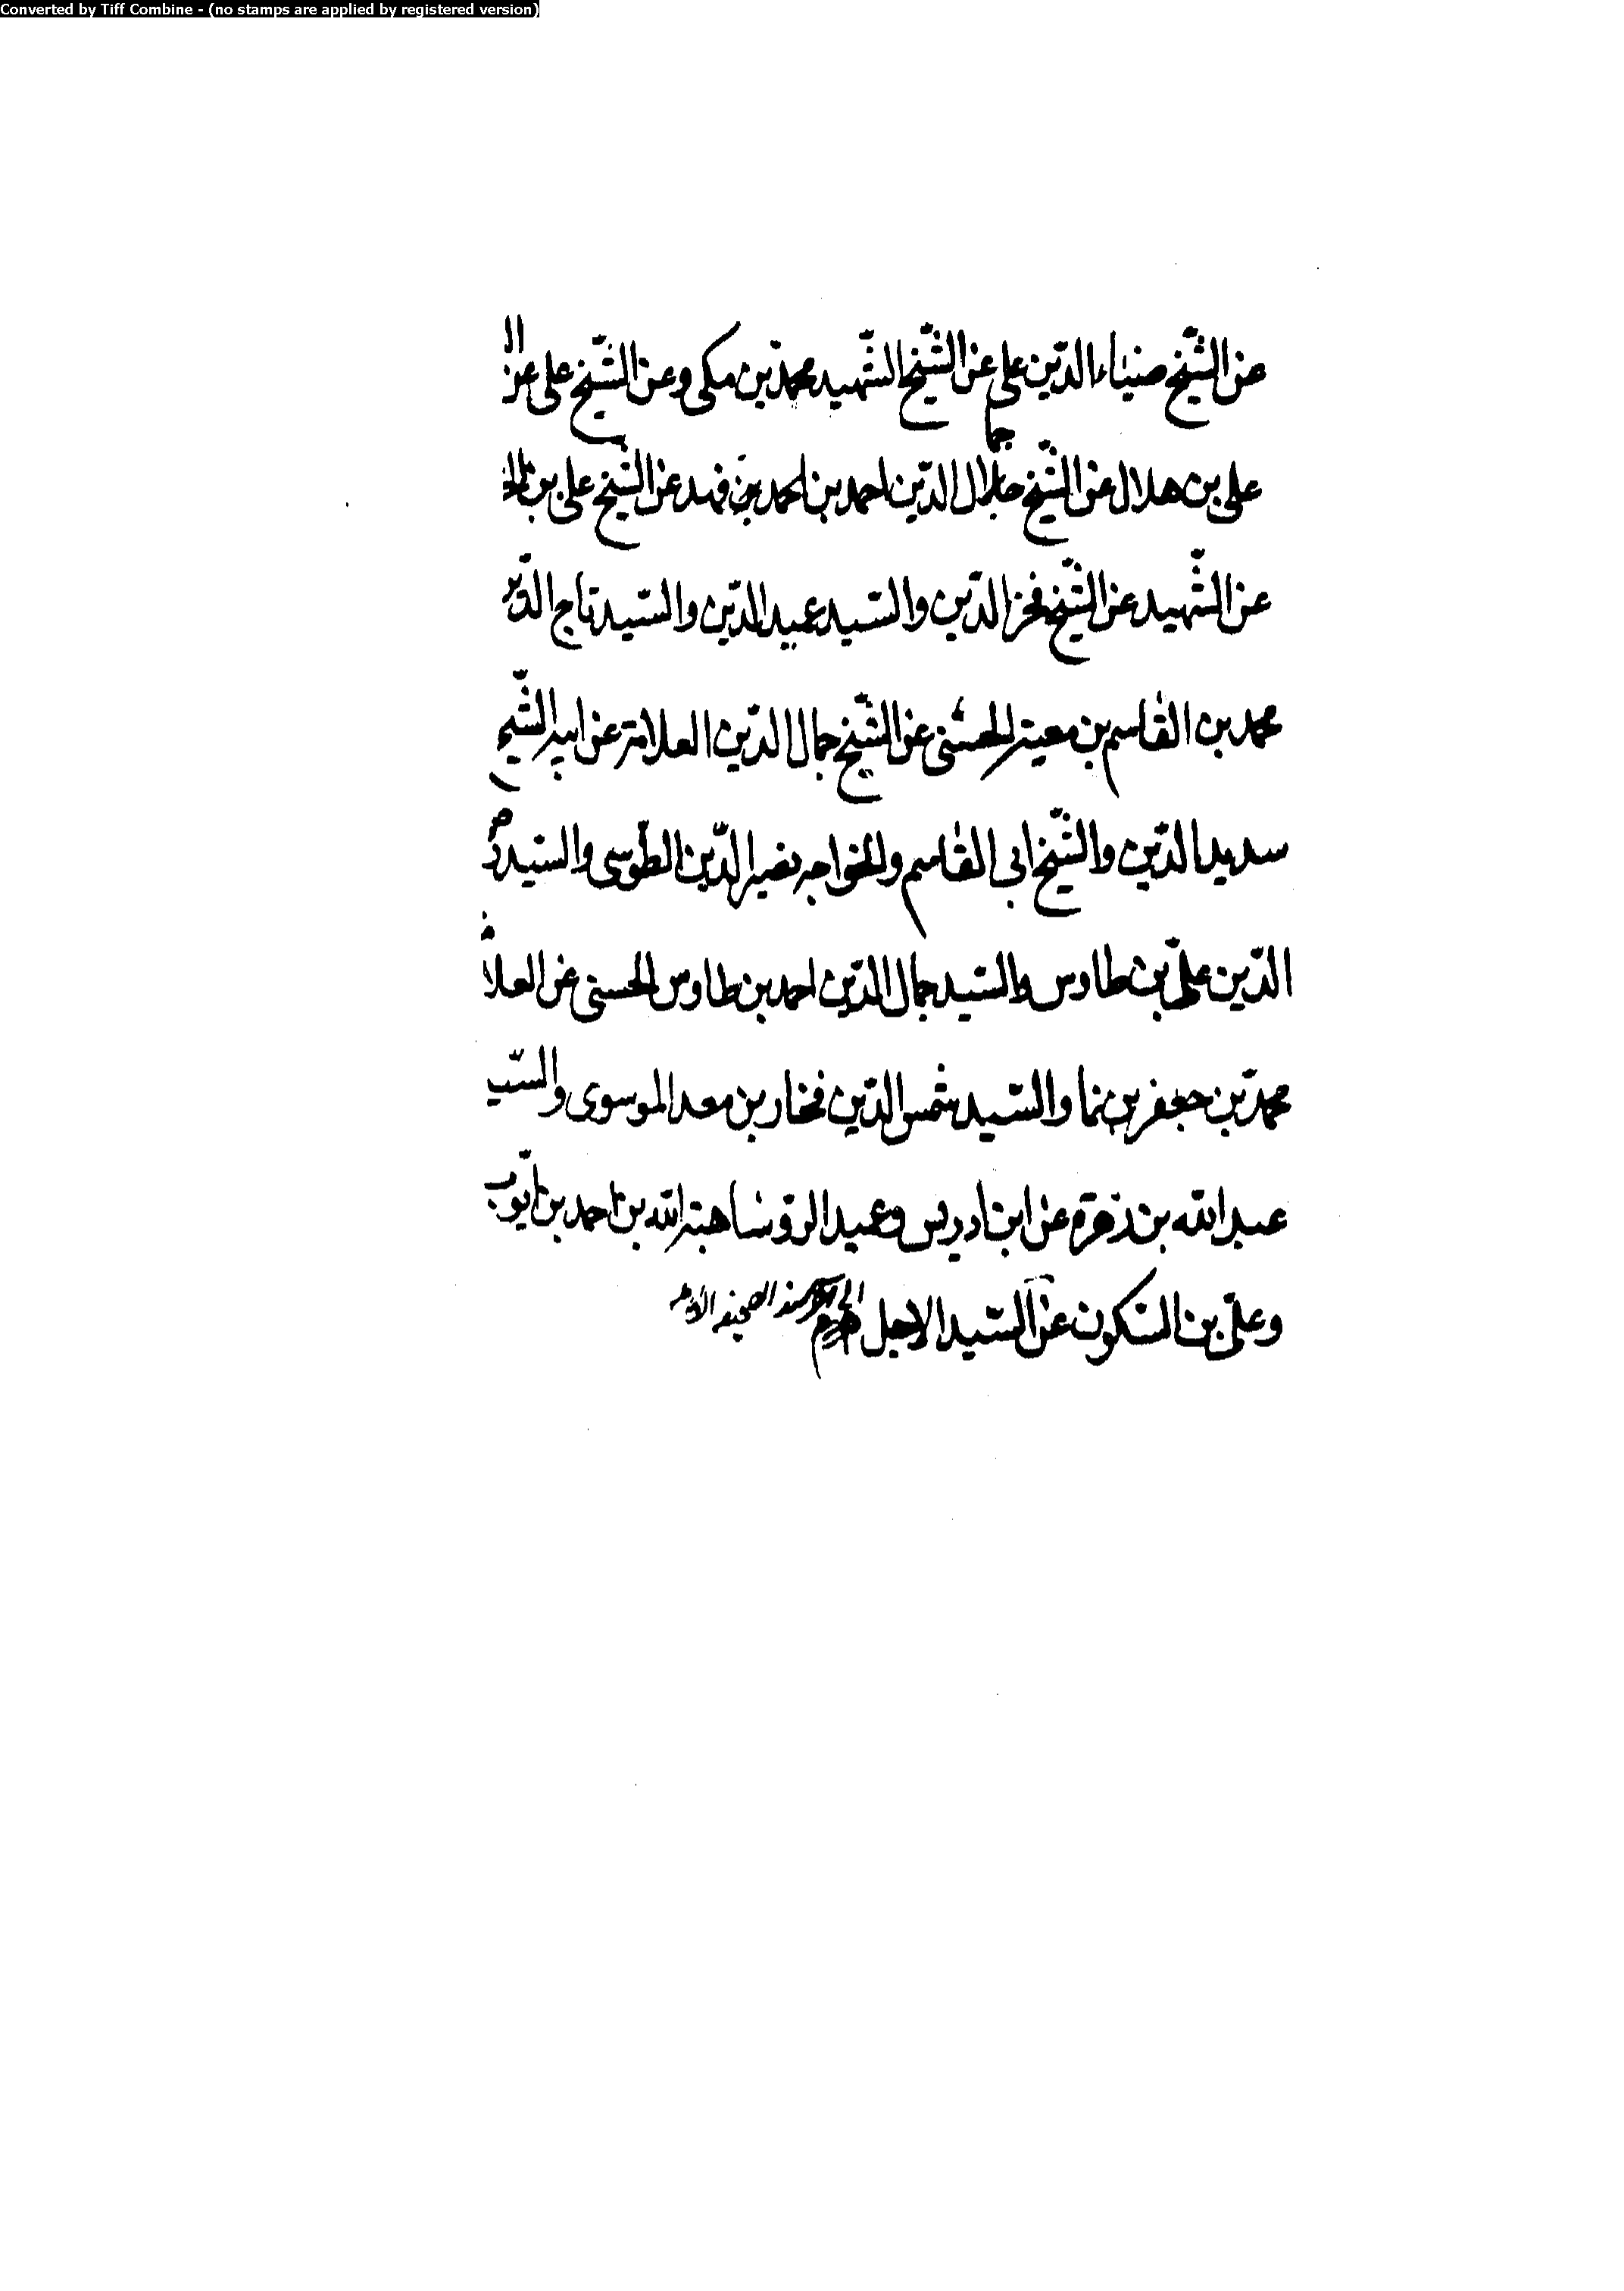 Converted by Tiff Combine - (no stamps are applied by registered version)
عن الشّيخ ضياء الدّين على عن الشّيخ الشّهيد محمّد بن مكى وعن الشّيخ على عن
على بن هلال عن الشّيخ جمال الدّين احمد بن احمد بن فهد عن الشّيخ على بن
عن الشّهيد عن الشّيخ فخر الدّين والسّيد عميد الدّين والسّيد تاج الدّين
محمد بن القاسم بن معية الحسنى عن الشّيخ جمال الدّين العلامة عن ابيه الشّيخ
سديد الدّين والشّيخ ابى القاسم والخواجه نصير الدّين الطّوسى والسّيد
الدّين علىّ بن طاوس والسّيد جمال الدّين احمد بن طاوس الحسنى عن العلا
محمّد بن جعفر بن نما والسّيد شمس الدّين فخار بن معد الموسوى والسّيد
عبد الله بن زهرة عن ابن ادريس وعميد الرّؤسا هبة الله بن احمد بن ايّوب
وعلىّ بن السّكون عن السّيد الاجل الى سند الصحيفه